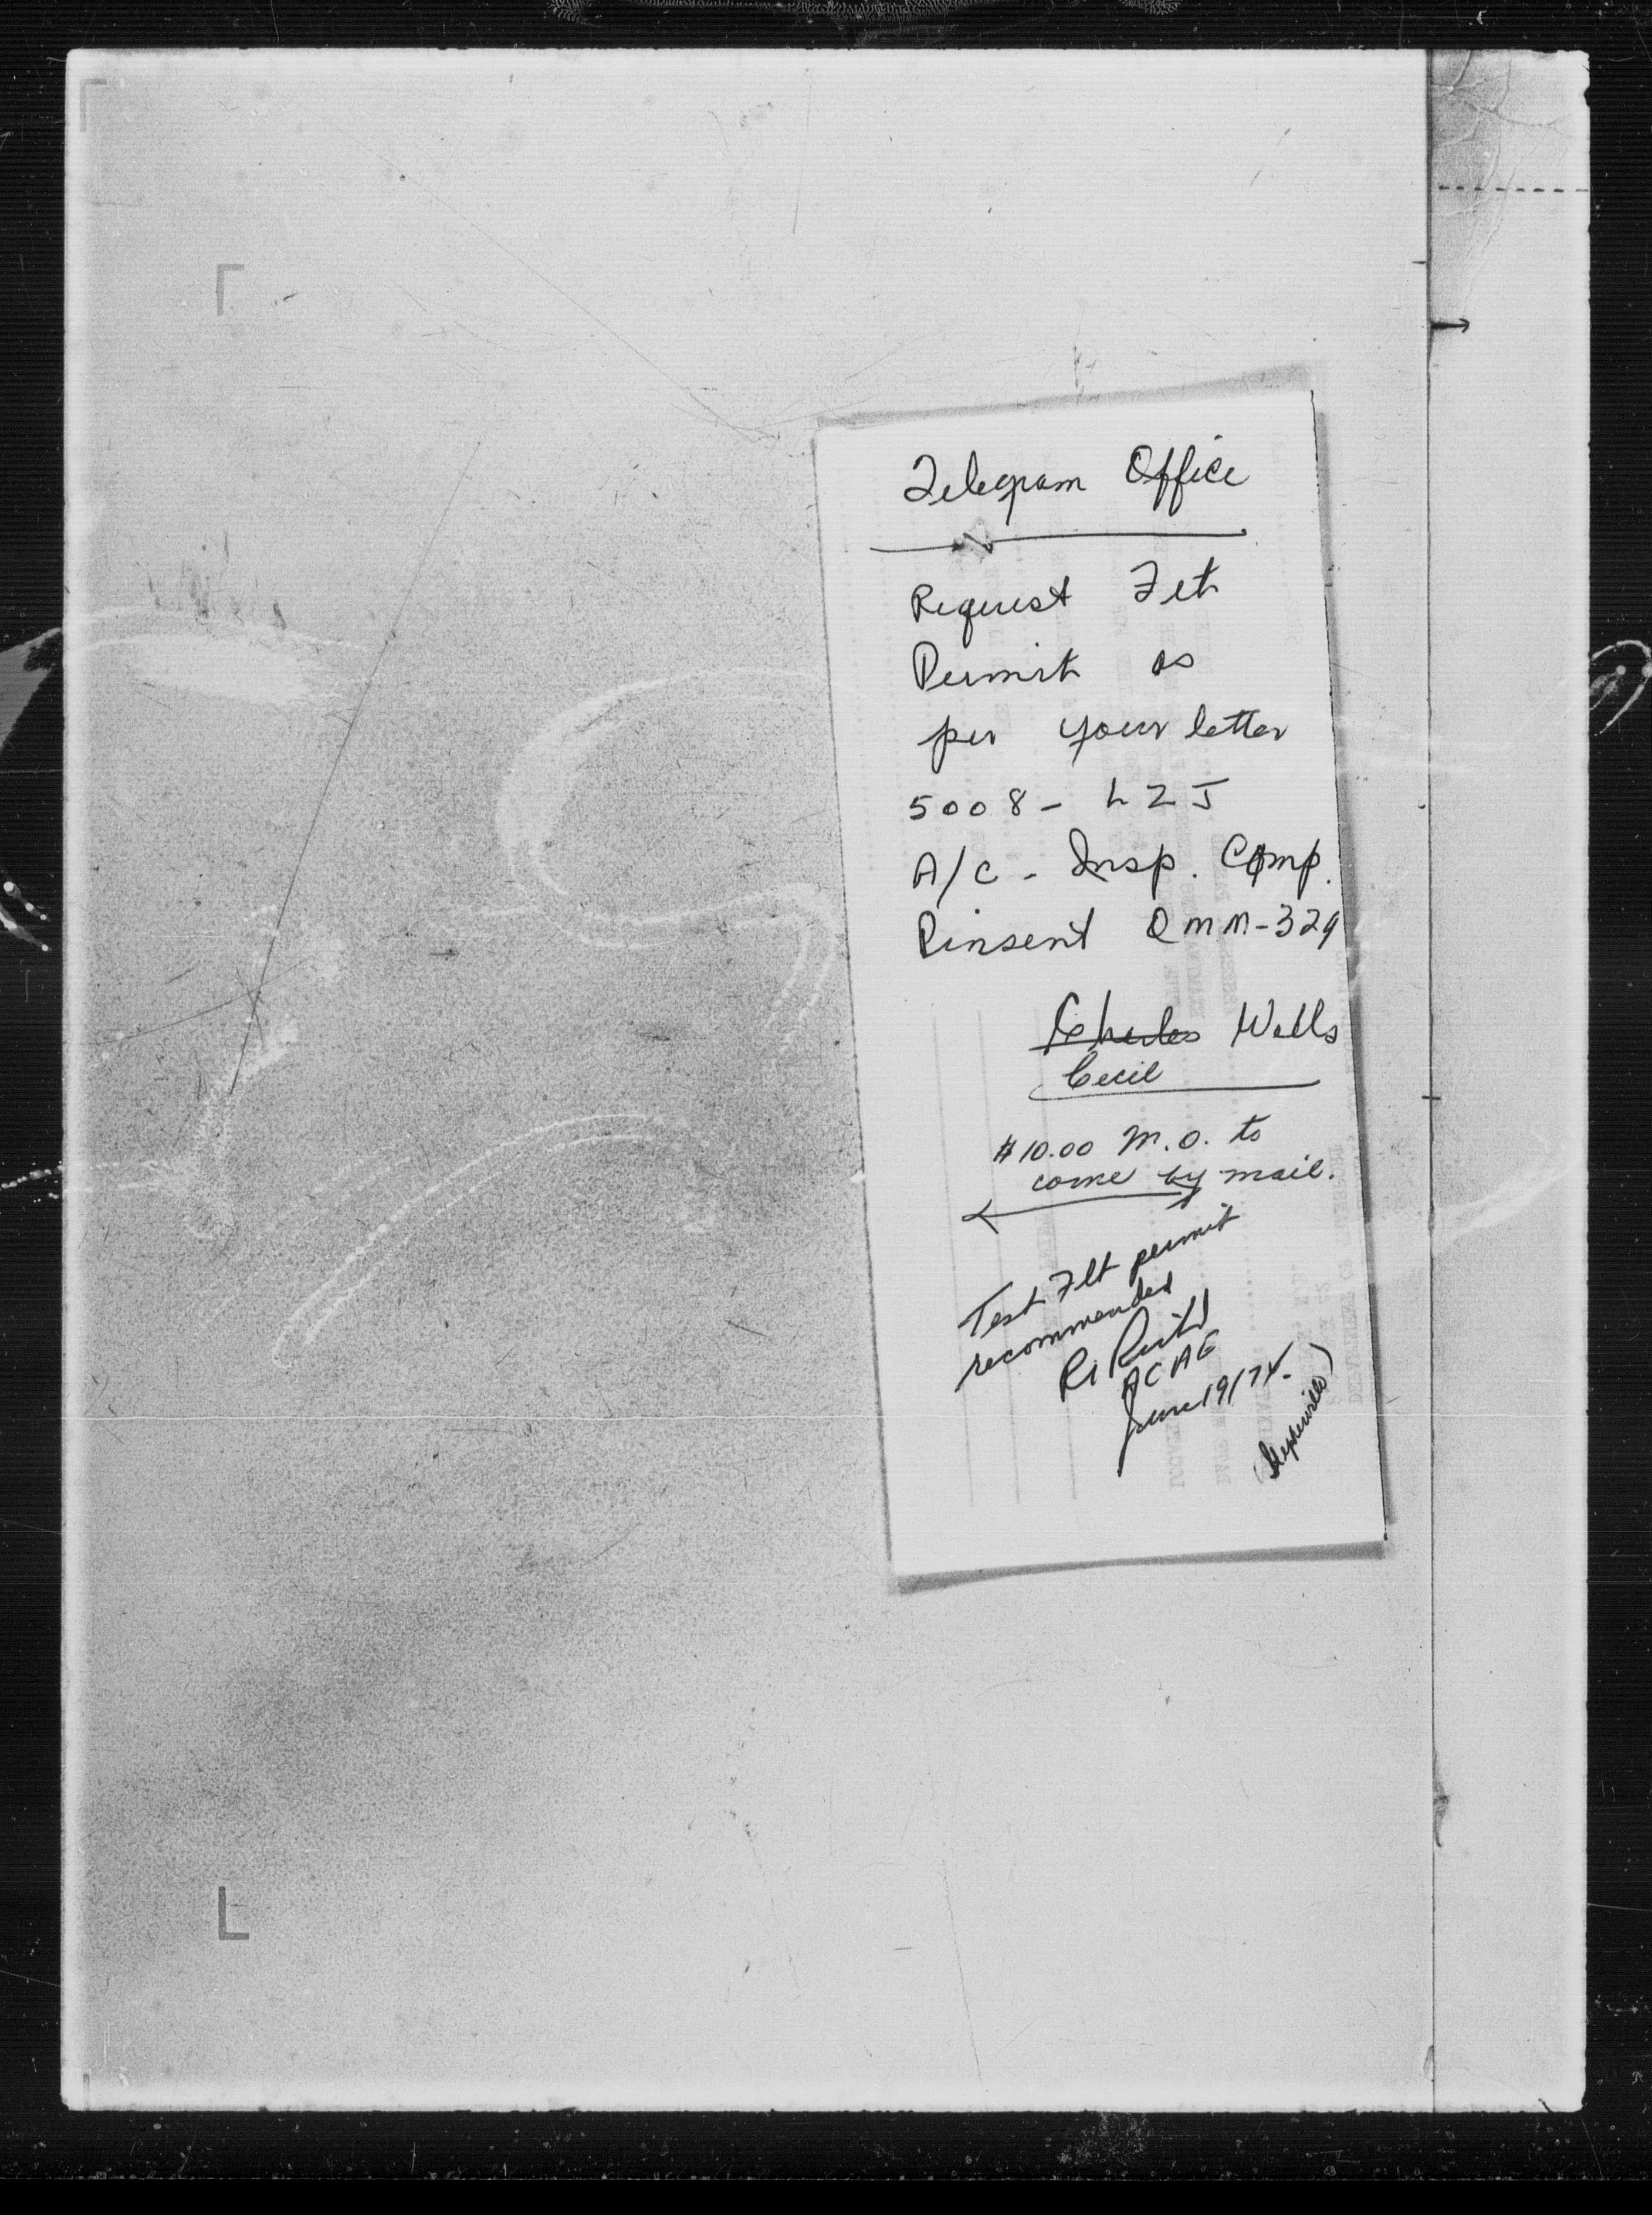 Telegram Office
Request Flt
Permit as
per your letter
5008 - LZJ
A/C - Insp. Comp.
Pinsent QMM-329
Charles Wells
Cecil
$10.00 M.O. to
come by mail.
Test Flt permit
recommended
ACAE
June 19/74